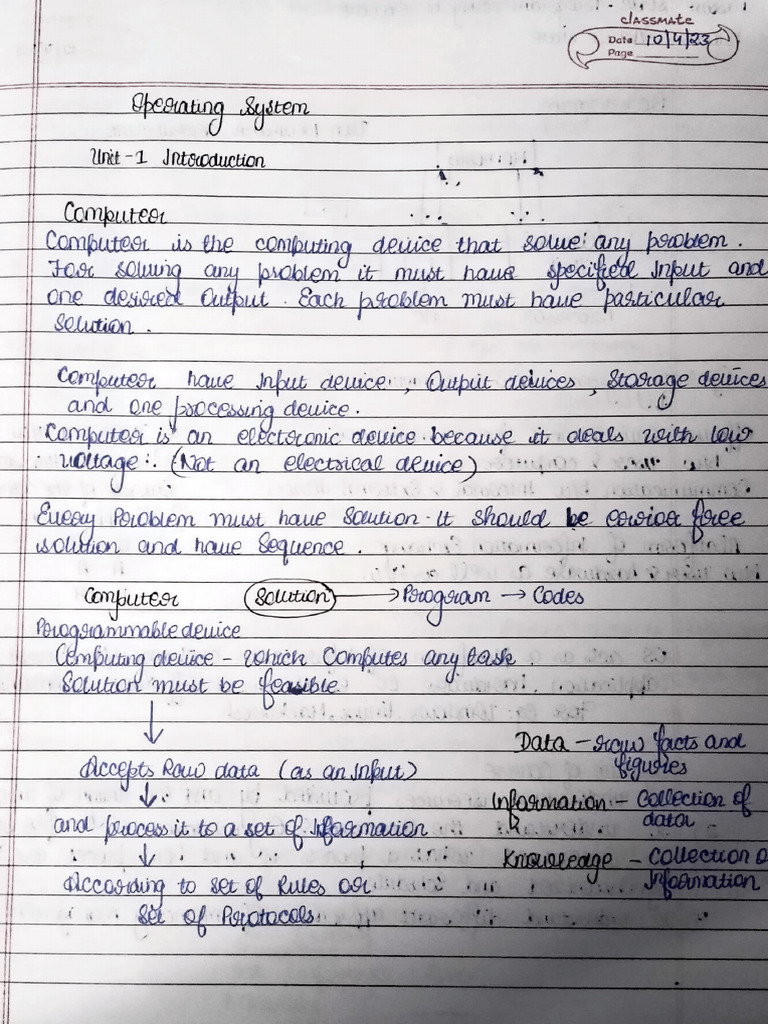 classmate
Date 10/4/23
Page
Operating System
Unit-1 Introduction
Computer
Computer is the computing device that solve any problem.
For solving any problem it must have specified Input and
one desired Output. Each problem must have particular
solution.
Computer have Input device, Output devices, Storage devices
and one processing device.
Computer is an electronic device because it deals with low
voltage. (Not an electrical device)
Every Problem must have solution. It should be error free
solution and have Sequence.
Computer Solution → Program → Codes
Programmable device
Computing device - which Computes any task.
Solution must be feasible
↓
Data - raw facts and
figures
Accepts Raw data (as an Input)
↓
Information - Collection of
data
and process it to a set of Information
↓
Knowledge - Collection o
Information
According to set of Rules or
Set of Protocols